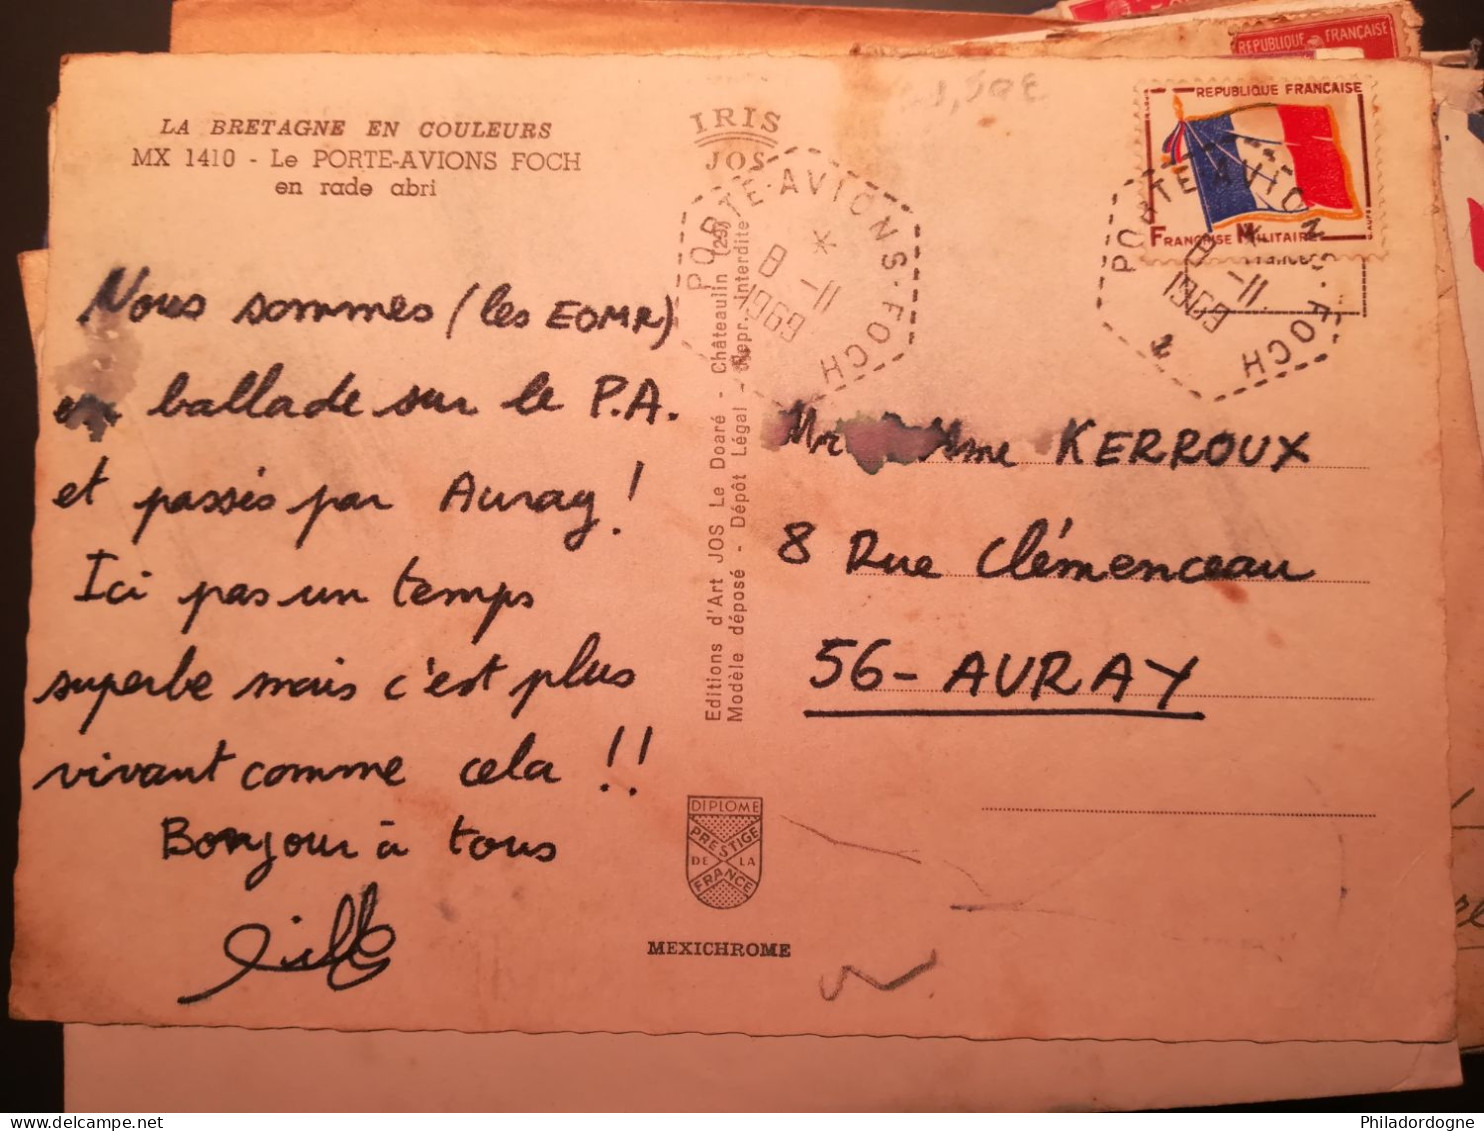 LA BRETAGNE EN COULEURS
MX 1410 - Le PORTE-AVIONS FOCH
en rade abri
IRIS
JOS
REPUBLIQUE FRANÇAISE
REPUBLIQUE FRANÇAISE
FRANCHISE MILITAIRE
PORTE-AVIONS-FOCH
*
8-11
1969
PORTE-AVIONS-FOCH
8-11
1969
Nous sommes (les EOMR)
en ballade sur le P.A.
et passés par Auray !
Ici pas un temps
superbe mais c'est plus
vivant comme cela !!
Bonjour à tous
Editions d'Art JOS Le Doaré - Châteaulin (29)
Modèle déposé - Dépôt Légal - Repr. interdite
Mr Mme KERROUX
8 Rue Clémenceau
56 - AURAY
DIPLOME
PRESTIGE
DE LA
FRANCE
MEXICHROME
Philadordogne